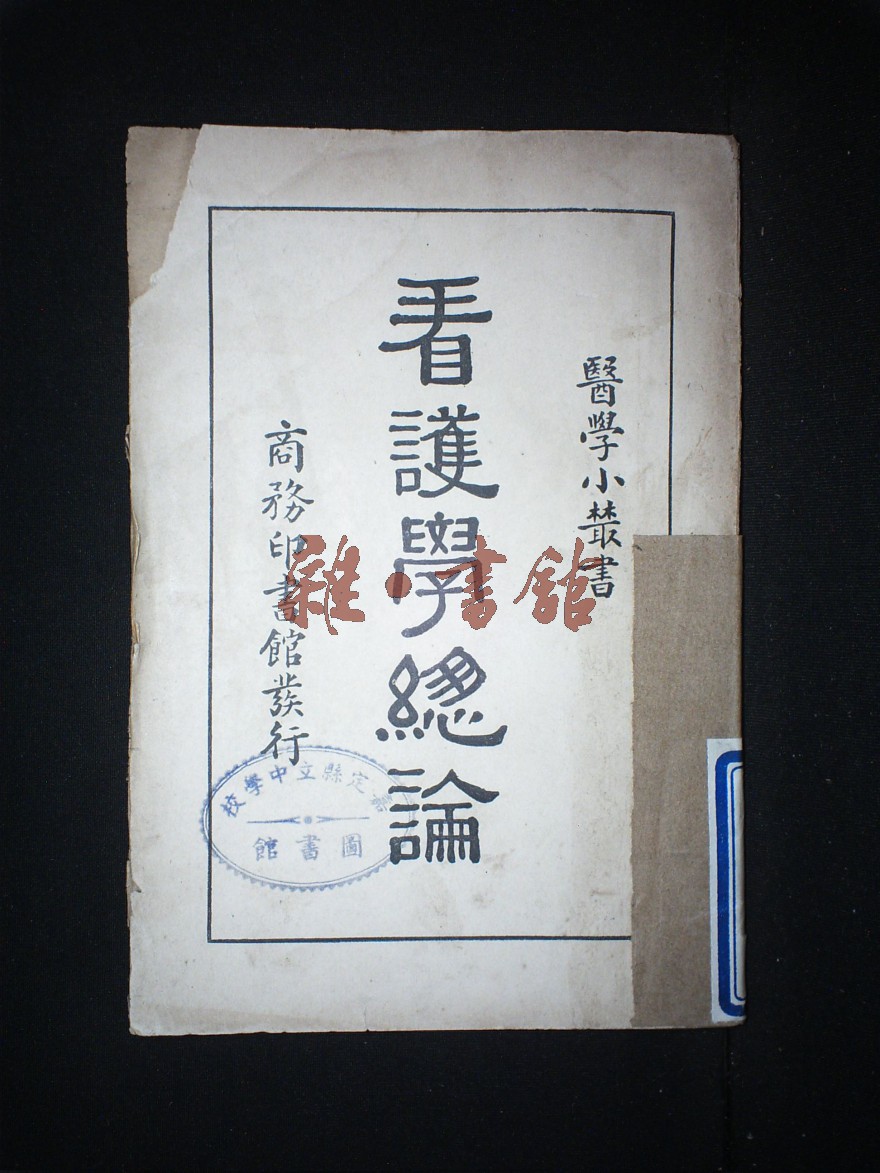 醫學小叢書
看護學總論
商務印書館發行
雜·書館
嘉定縣立中學校
圖書館